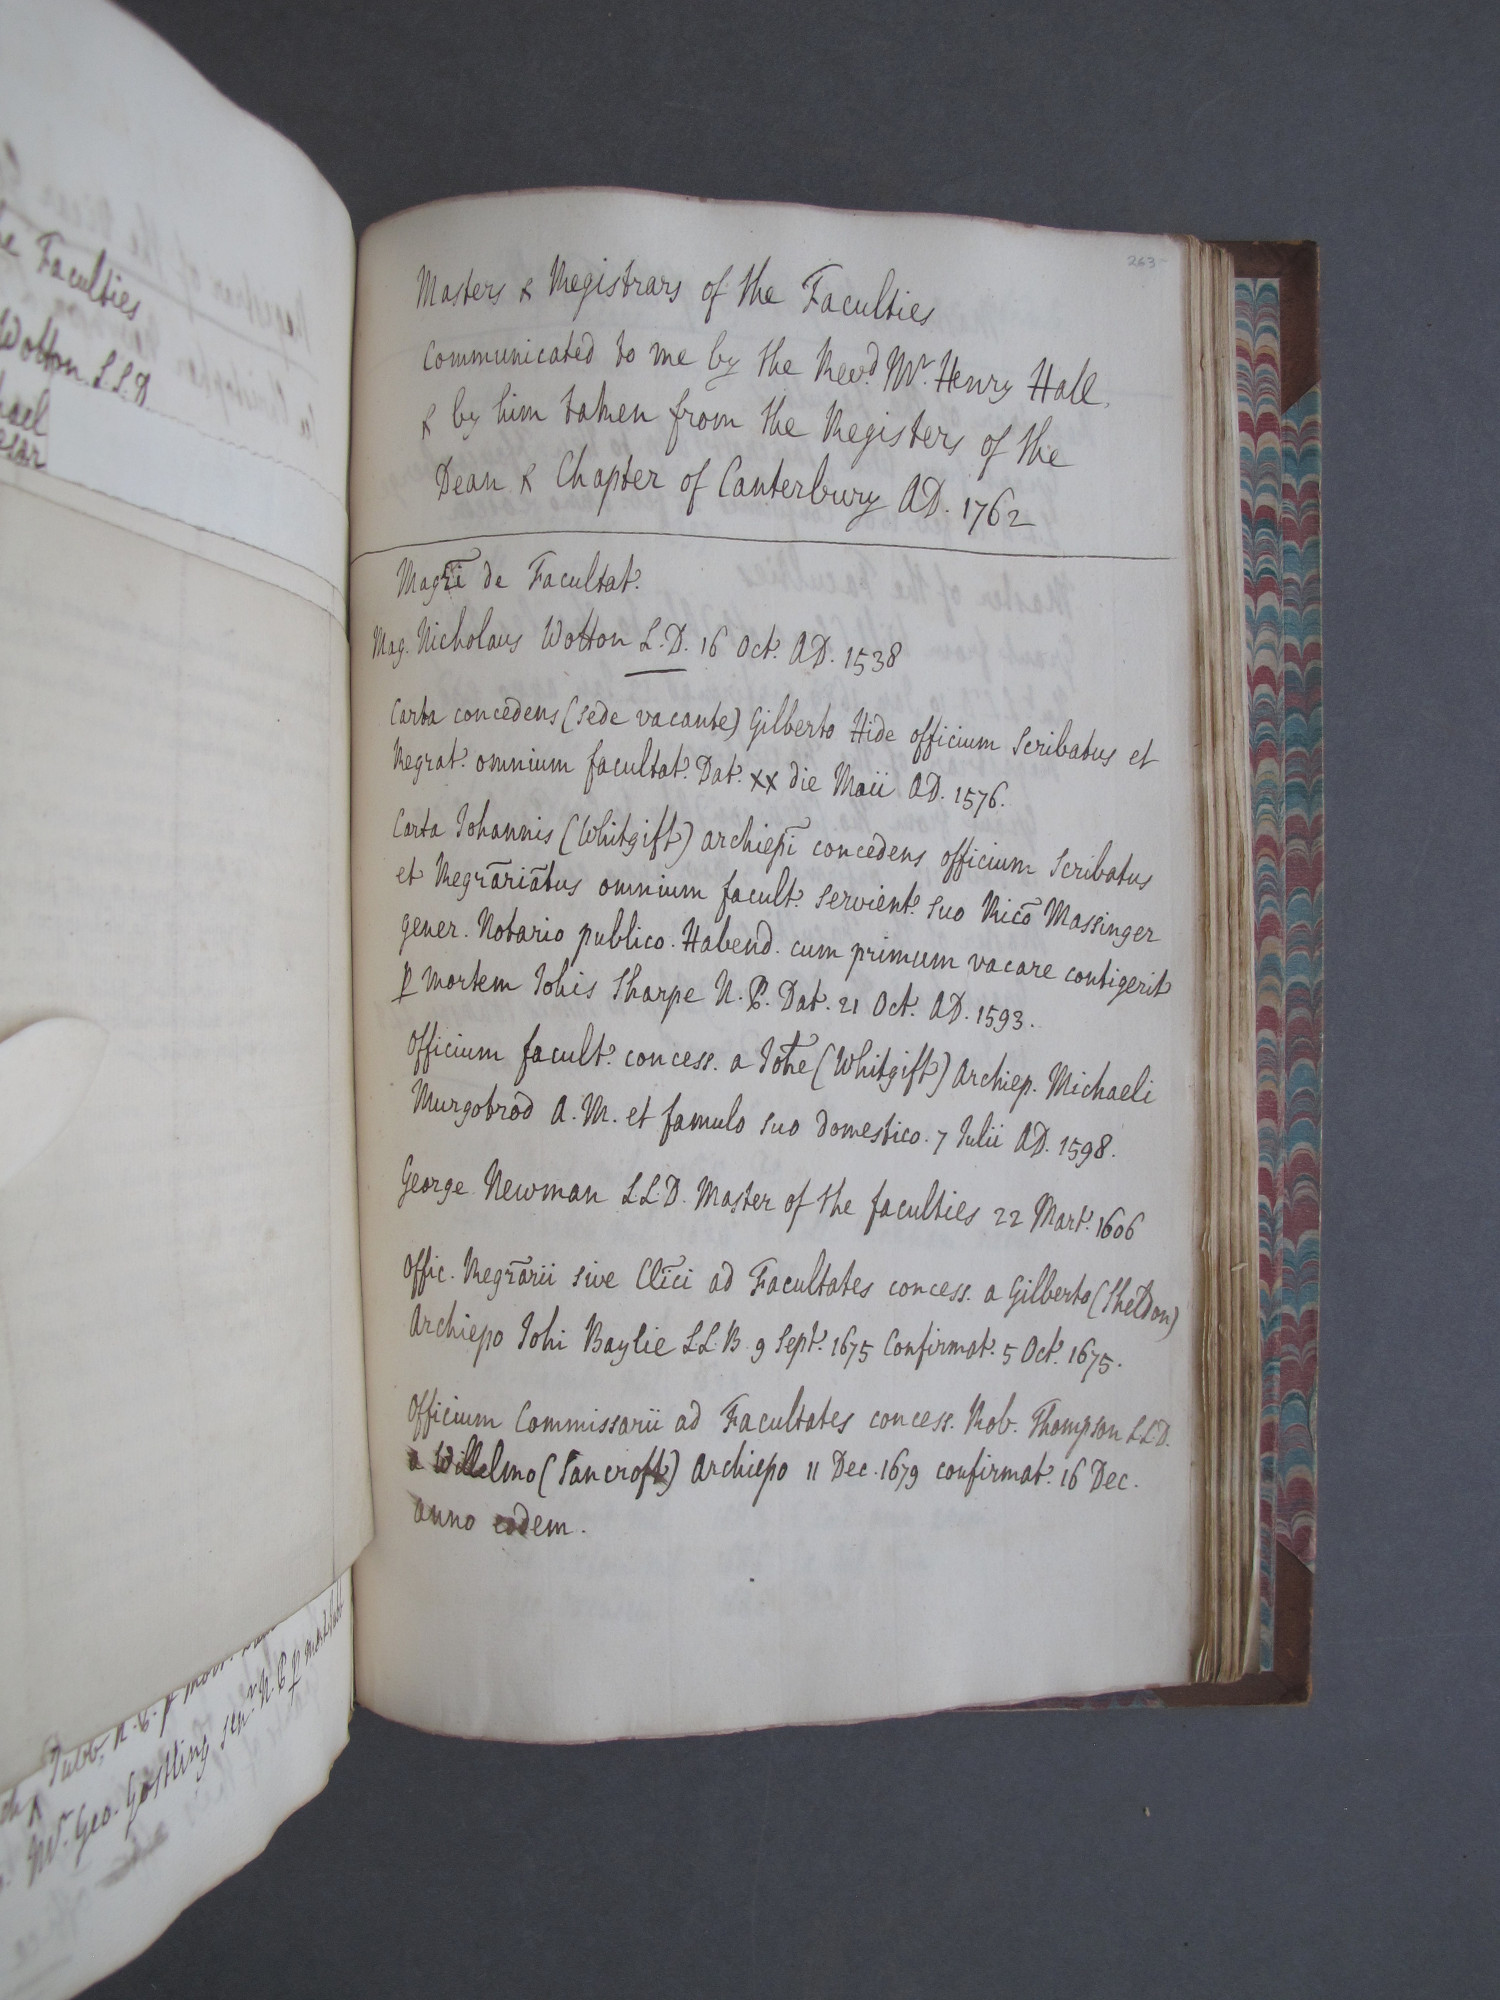 he Faculties
Wotton LLD
hael
esar
Tubb, N.P.
Mr. Geo. Gostling senr. N.P.
263
Masters & Registrars of the Faculties
communicated to me by the Revd. Mr. Henry Hall,
& by him taken from the Registers of the
Dean & Chapter of Canterbury AD. 1762
Magri de Facultat.
Mag. Nicholaus Wotton L.D. 16 Oct. AD. 1538
Carta concedens (sede vacante) Gilberto Hide officium Scribatus et
Regrat. omnium facultat. Dat. xx die Maii AD. 1576.
Carta Johannis (Whitgift) archiepi concedens officium Scribatus
et Regrariatus omnium facult. servient. suo Rico Massinger
gener. Notario publico. Habend. cum primum vacare contigerit
p mortem Johis Sharpe N.P. Dat. 21 Oct. AD. 1593.
Officium facult. concess. a Johe (Whitgift) Archiep. Michaeli
Murgobrod A.M. et famulo suo domestico. 7 Julii AD. 1598.
George Newman LLD. Master of the faculties 22 Mart. 1606
Offic. Regrarii sive Clici ad Facultates concess. a Gilberto (Sheldon)
Archiepo Johi Baylie LL.B. 9 Sept. 1675 Confirmat. 5 Oct. 1675.
Officium Commissarii ad Facultates concess. Rob. Thompson LLD.
a Willelmo (Sancroft) Archiepo 11 Dec. 1679 confirmat. 16 Dec.
anno eodem.